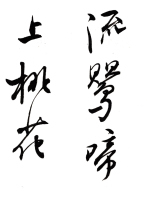 流鶯啼
上桃花